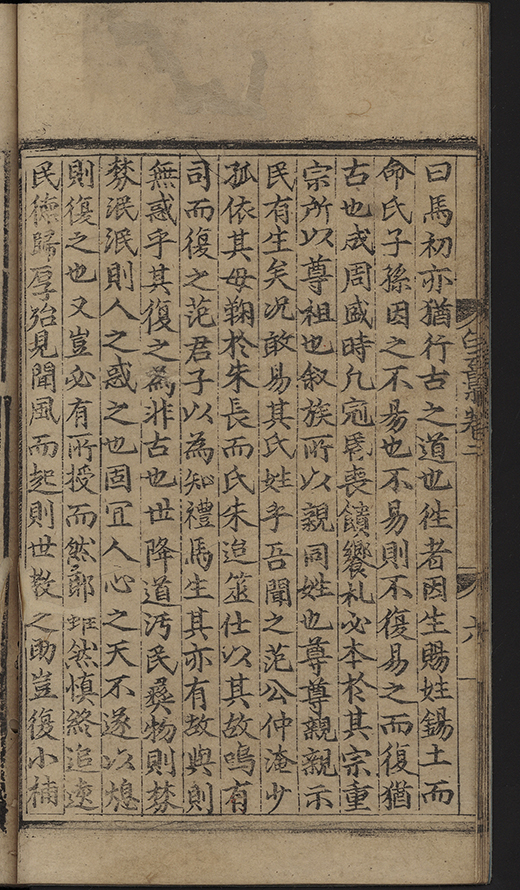 曰馬初亦猶行古之道也徃者因生賜姓錫土而
命氏子孫因之不易也不易則不復易之而復猶
古也成周盛時凢冠昏喪饋饗礼必本於其宗重
宗所以尊祖也叙族所以親同姓也尊尊親親示
民有生矣况敢易其氏姓乎吾聞之范公仲淹少
孤依其母鞠於朱長而氏朱迨筮仕以其故鳴有
司而復之范君子以為知禮馬生其亦有故與則
無惑乎其復之為非古也世降道汚民彞物則棼
棼泯泯則人之惑之也固冝人心之天不遂以熄
則復之也又豈必有所授而然郎然慎終追遠
民德歸厚殆見聞風而起則世敎之助豈復小補
卷二
六